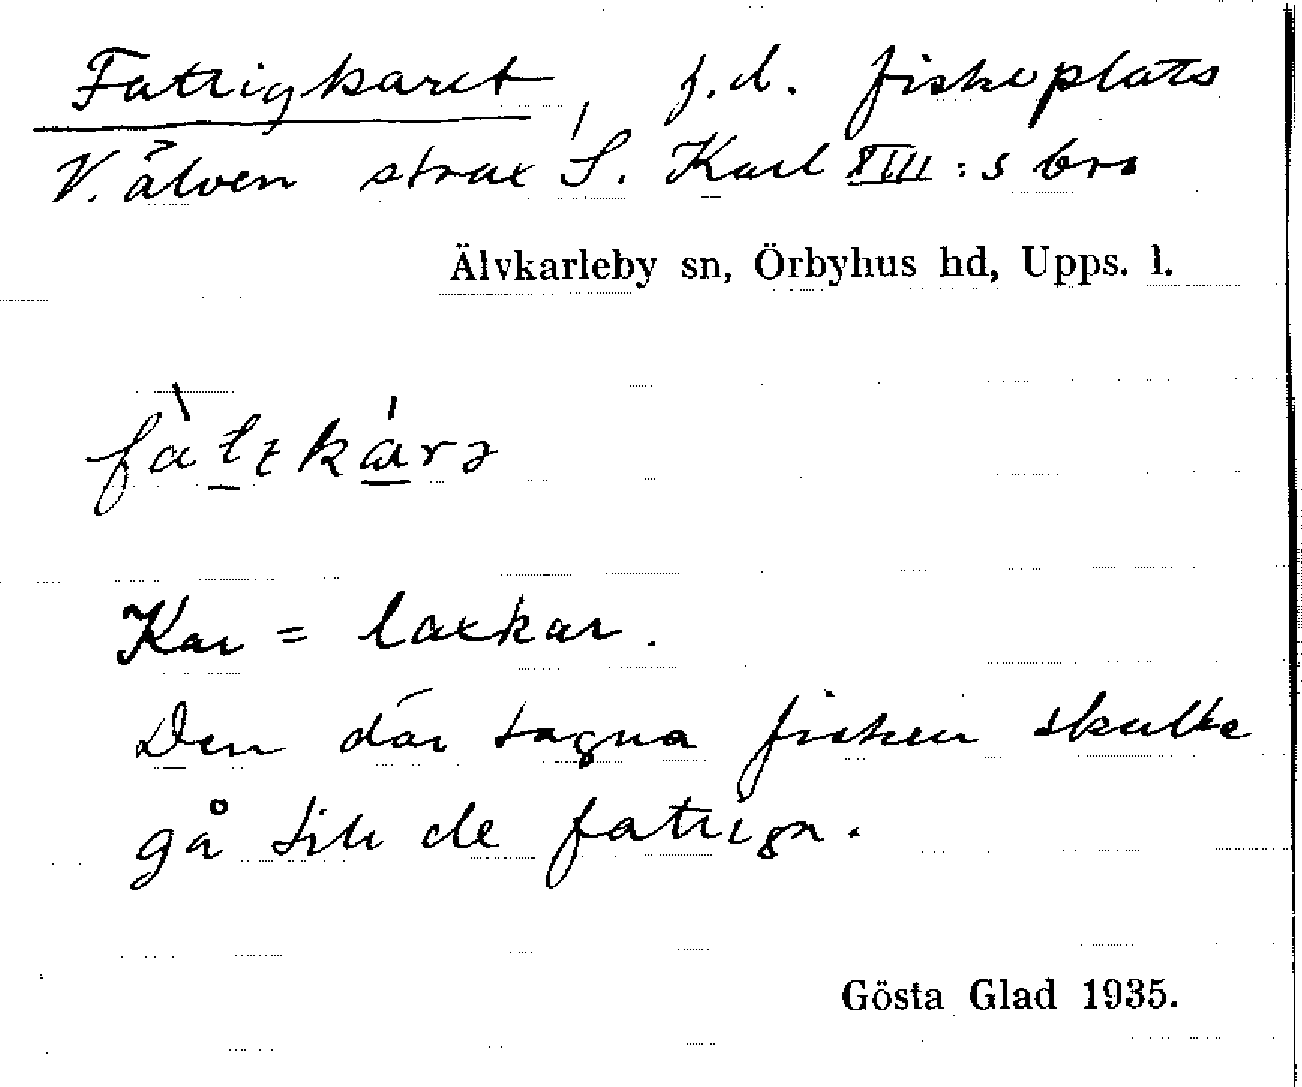 Fattigkaret, f.d. fiskeplats
V. älven strax S. Karl XIII:s bro
Älvkarleby sn, Örbyhus hd, Upps. l.
Kar = laxkar.
Den där tagna fisken skulle
gå till de fattiga.
Gösta Glad 1935.